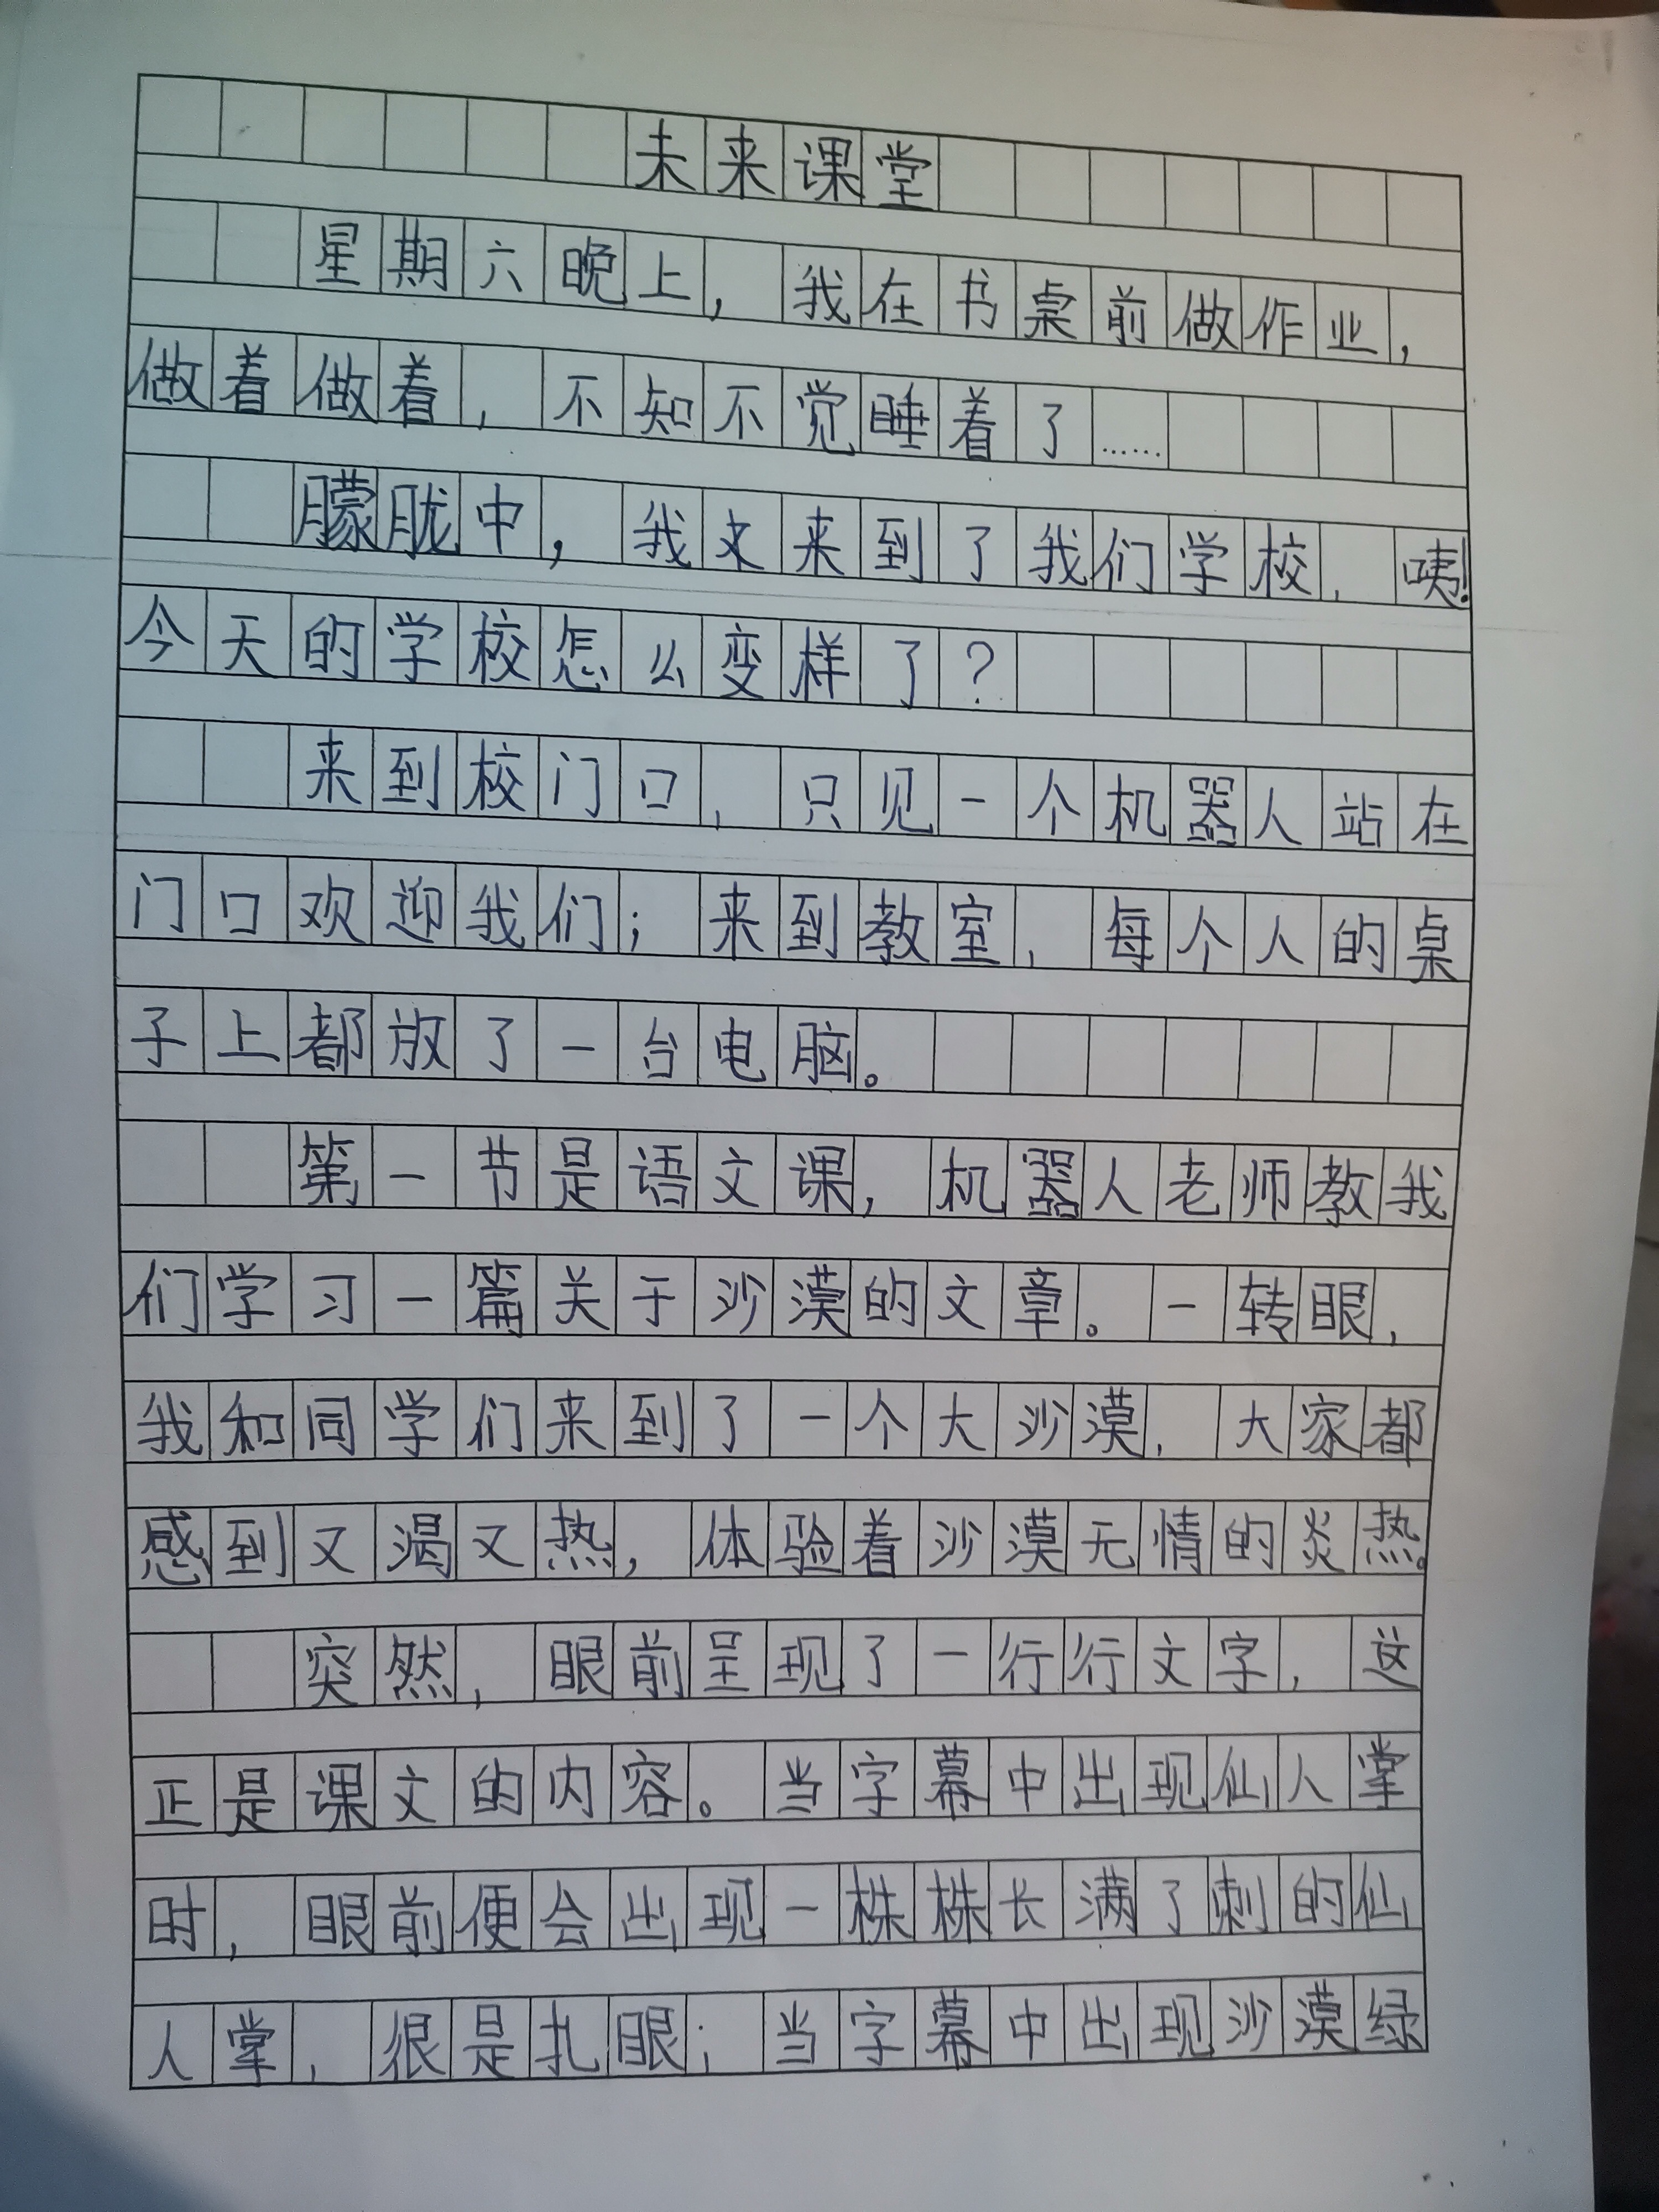 未来课堂
星期六晚上，我在书桌前做作业，
做着做着，不知不觉睡着了……
朦胧中，我又来到了我们学校，咦！
今天的学校怎么变样了？
来到校门口，只见一个机器人站在
门口欢迎我们；来到教室，每个人的桌
子上都放了一台电脑。
第一节是语文课，机器人老师教我
们学习一篇关于沙漠的文章。一转眼，
我和同学们来到了一个大沙漠，大家都
感到又渴又热，体验着沙漠无情的炎热。
突然，眼前呈现了一行行文字，这
正是课文的内容。当字幕中出现仙人掌
时，眼前便会出现一株株长满了刺的仙
人掌，很是扎眼；当字幕中出现沙漠绿